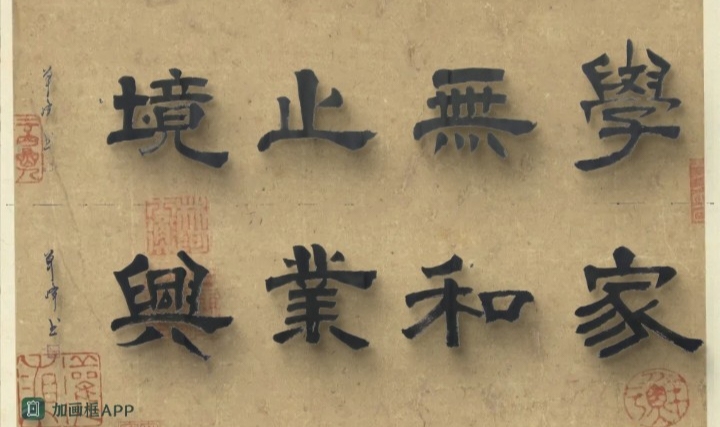 學無止境
家和業興
加画框APP